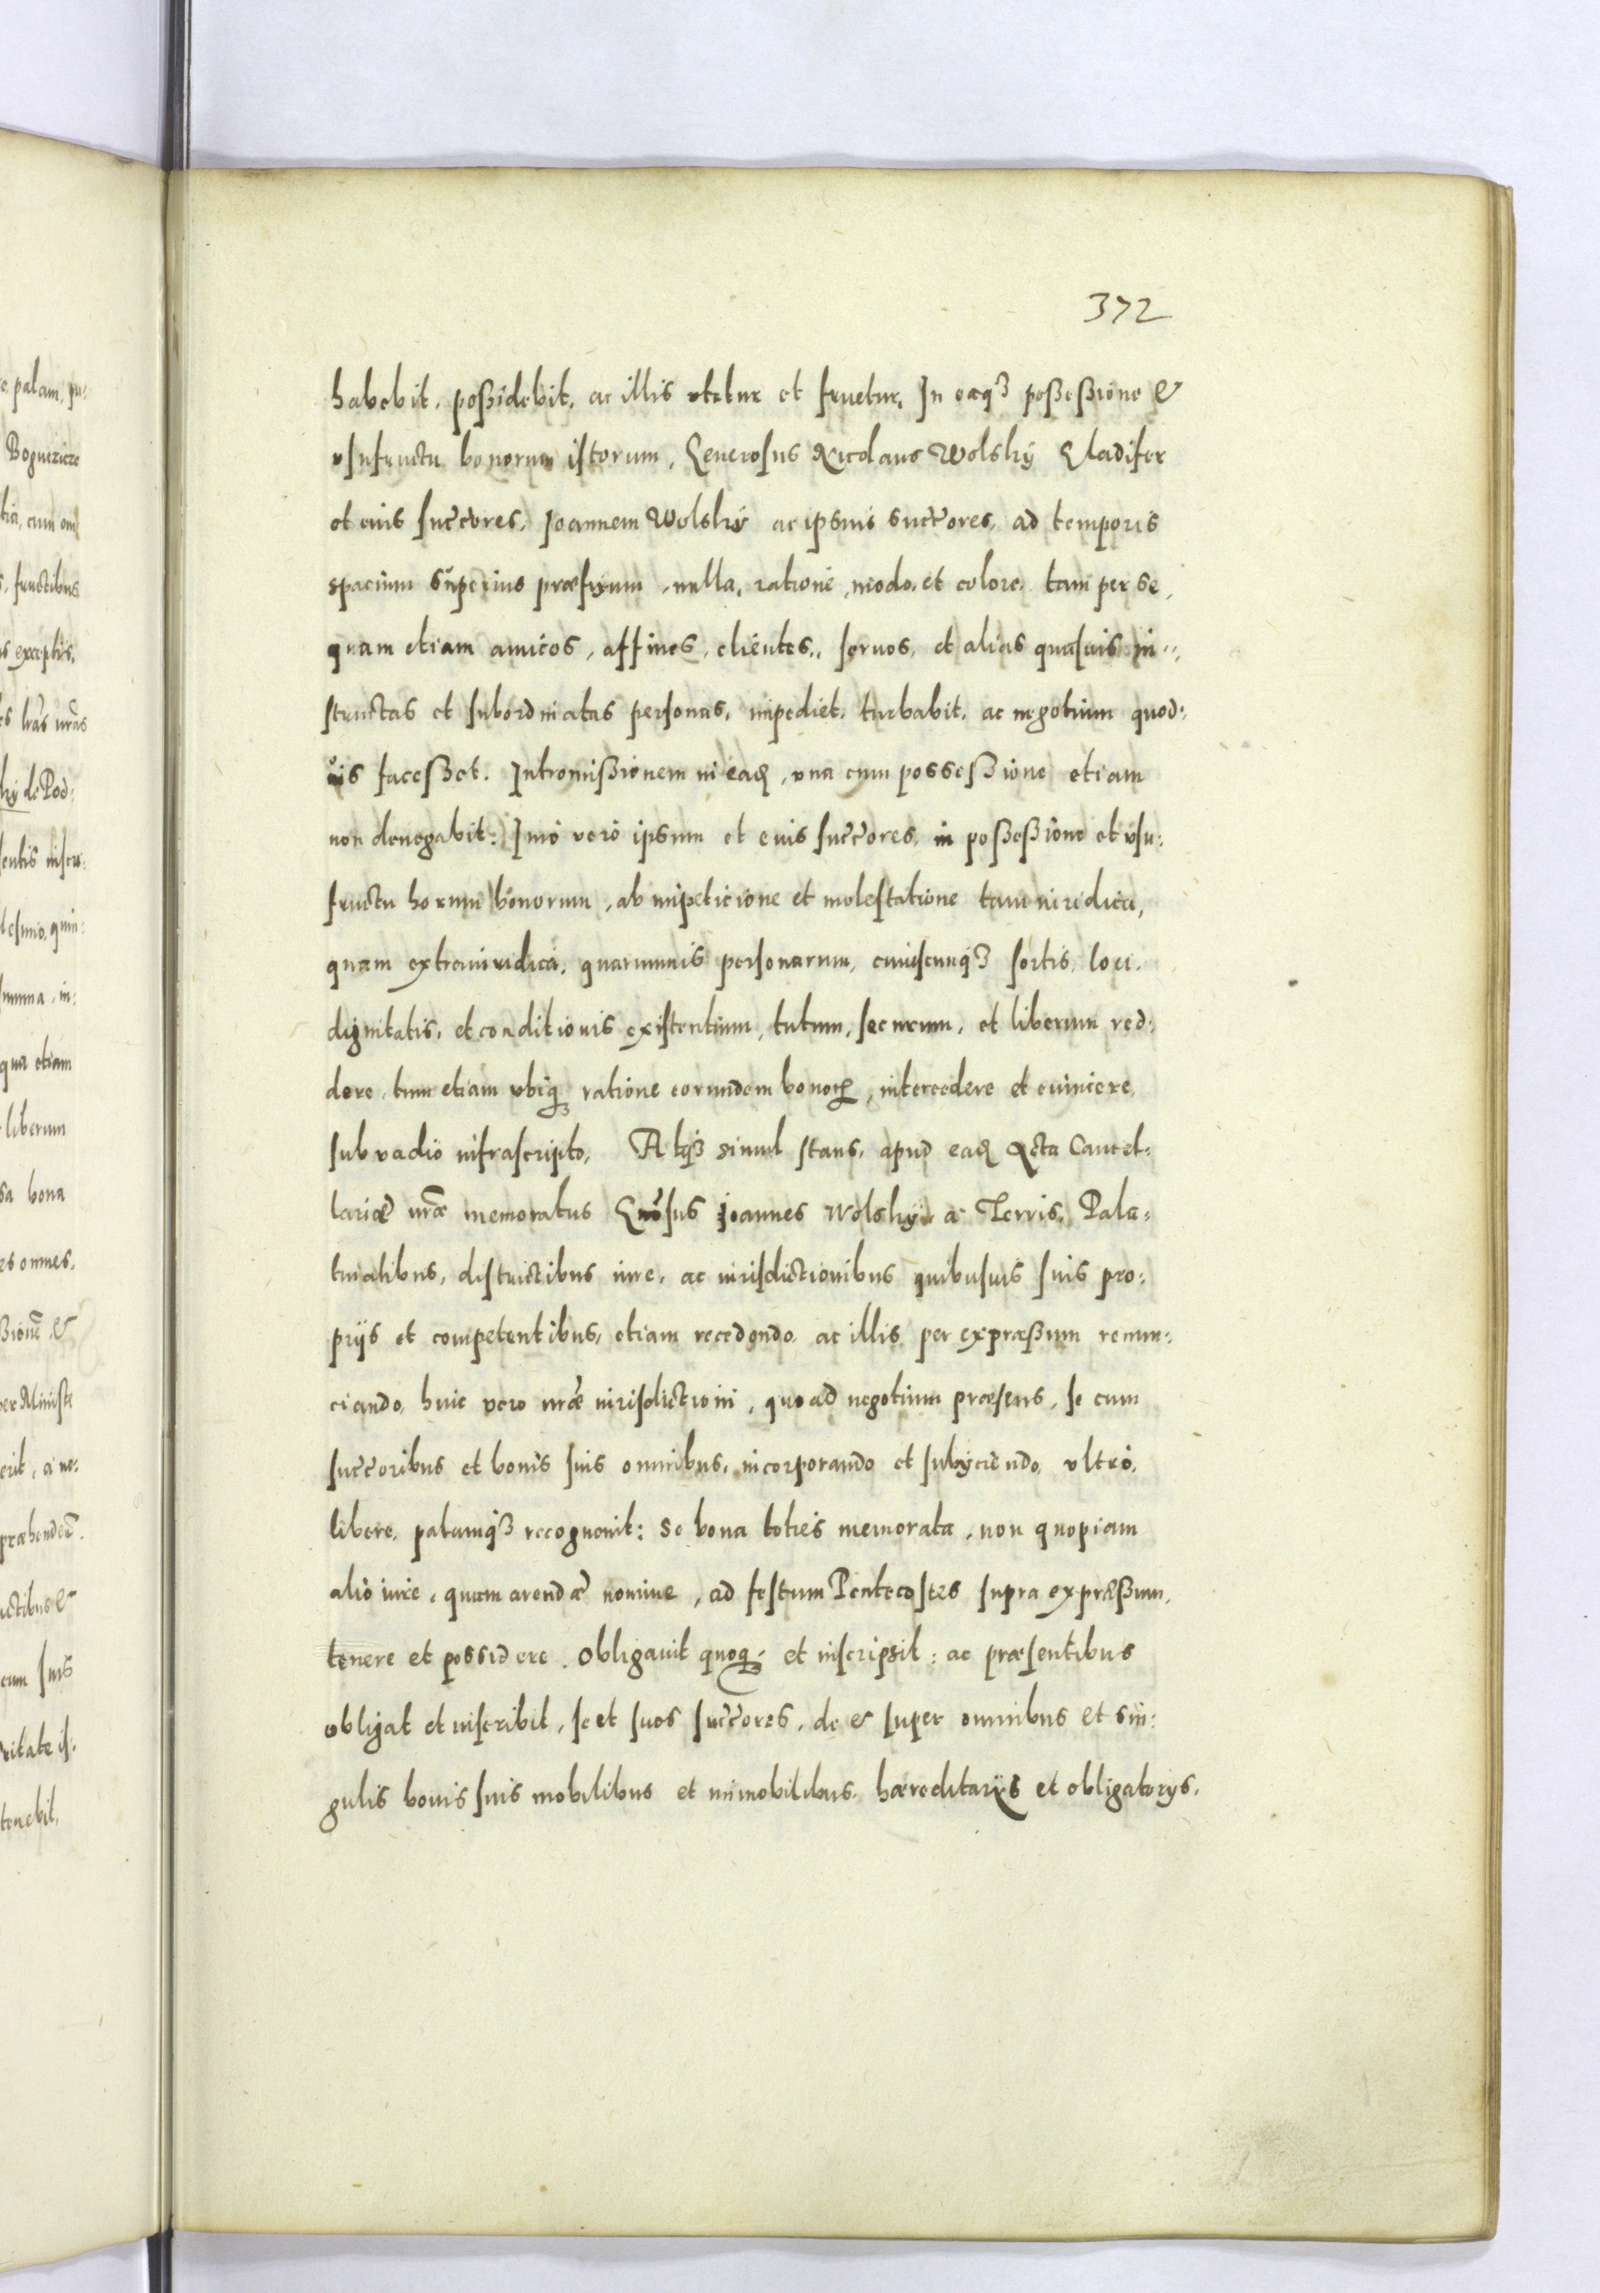 372
habebit, poßidebit, ac illis utetur et fruetur, In eaq3 poßeßione &
vsufructu bonorum istorum, Generosus Nicolaus Wolsky Gladifer
et eius succ̃ores, Joannem Wolsky ac ipsius succ̃ores, ad temporis
spacium superius præfixum, nulla, ratione, modo, et colore, tam per se,
quam etiam amicos, affines, clientes, seruos, et alias quasuis in-
structas et subordinatas personas, impediet, turbabit, ac negotium quod:
uis faceßet. Intromißionem in eadẽ, vna cum possesßione etiam
non denegabit: Imò verò ipsum et eius succ̃ores, in poßeßione et vsu:
fructu horum bonorum, ab impeticione et molestatione tam iuridica,
quam extraiuridica, quarumuis personarum, cuiuscunq3 sortis, loci,
dignitatis, et conditionis existentium, tutum, securum, et liberum red:
dere, tum etiam vbiq3 ratione eorundem bonoꝝ, intercedere et euincere,
sub vadio infrascripto, Atq3 simul stans, apud eadẽ Acta Cancel:
lariæ nr̃æ memoratus Gnõsus Joannes Wolsky à Terris, Pala:
tinatibus, districtibus iure, ac iurisdictionibus quibusuis suis pro:
prijs et competentibus, etiam recedendo, ac illis per expræßum renun:
ciando, huic vero nr̃æ iurisdictioni, quo ad negotium præsens, se cum
succ̃oribus et bonis suis omnibus, incorporando et subijciendo, vltrò,
libere, palamq3 recognouit: Se bona toties memorata, non quopiam
alio iure, quam arendæ nomine, ad festum Pentecostes supra expræßum,
tenere et possidere. Obligauit quoq3 et inscripsit: ac præsentibus
obligat et inscribit, se et suos succ̃ores, de & super omnibus et sin:
gulis bonis suis mobilibus et immobilibus, hæreditarijs et obligatorijs,